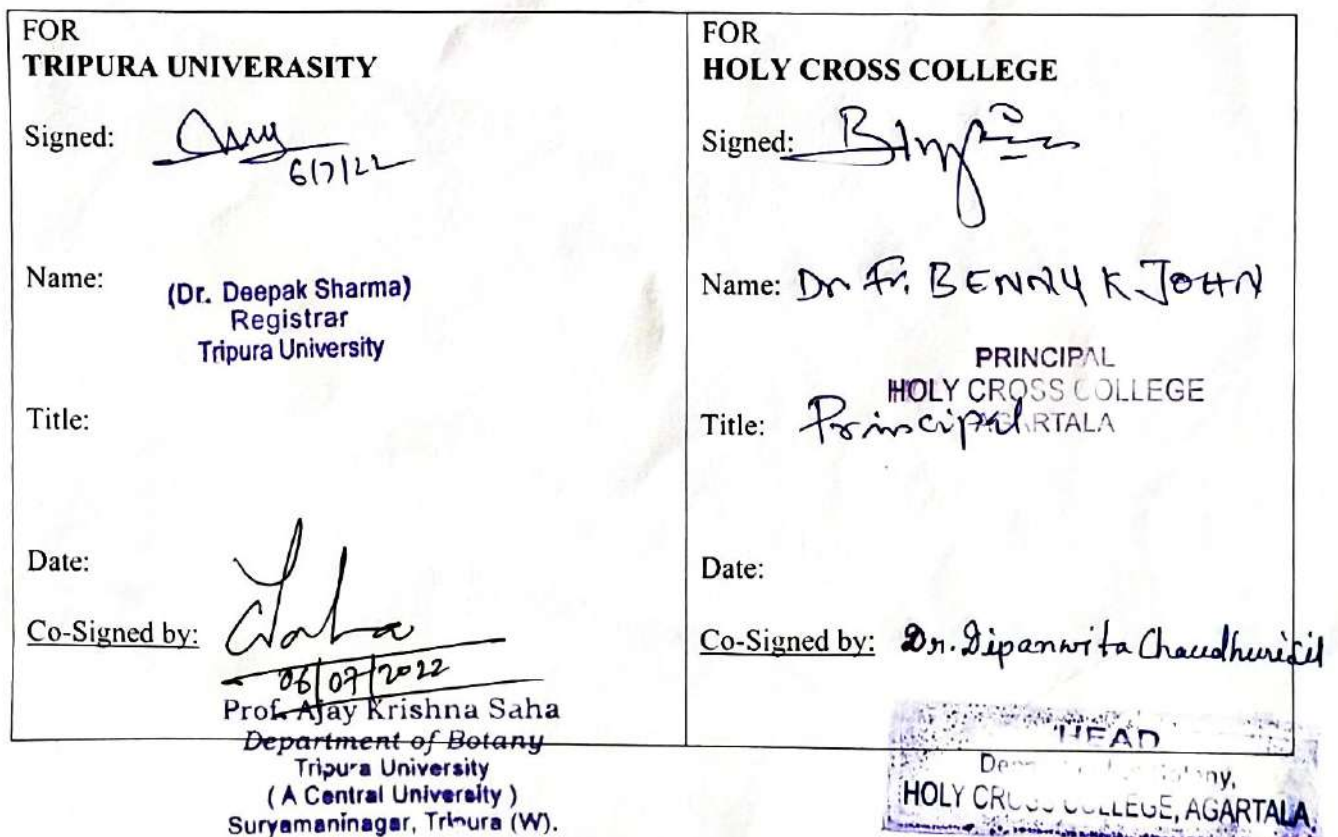 FOR
TRIPURA UNIVERASITY
Signed:
6/7/22
Name:
(Dr. Deepak Sharma)
Registrar
Tripura University
Title:
Date:
Co-Signed by:
06/07/2022
Prof. Ajay Krishna Saha
Department of Botany
Tripura University
( A Central University )
Suryamaninagar, Tripura (W).
FOR
HOLY CROSS COLLEGE
Signed:
Name: Dr Fr. BENNY K JOHN
PRINCIPAL
HOLY CROSS COLLEGE
AGARTALA
Title: Principal
Date:
Co-Signed by: Dr. Dipanwita Chaudhuri
HEAD
HOLY CROSS COLLEGE, AGARTALA